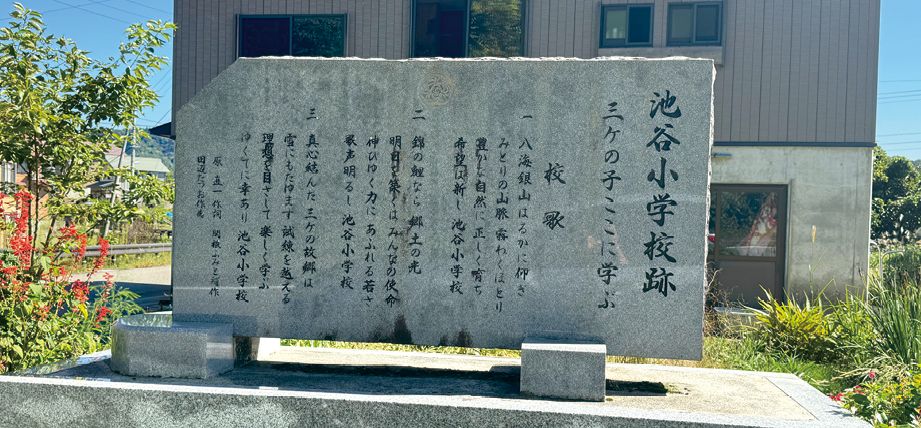 池谷小学校跡
三ケの子ここに学ぶ
校歌
一 八海銀山はるかに仰ぎ
みとりの山脈 霧わくほとり
豊かな自然に 正しく育ち
希望は新し 池谷小学校
二 錦の鯉なら 郷土の光
明日を築くは みんなの使命
伸びゆく力に あふれる若さ
歌声明るし 池谷小学校
三 真心結んだ 三ケの故郷は
雪にもたゆまず 試練を越える
理想を目ざして 楽しく学ぶ
ゆくてに幸あり 池谷小学校
原 直一 作詞